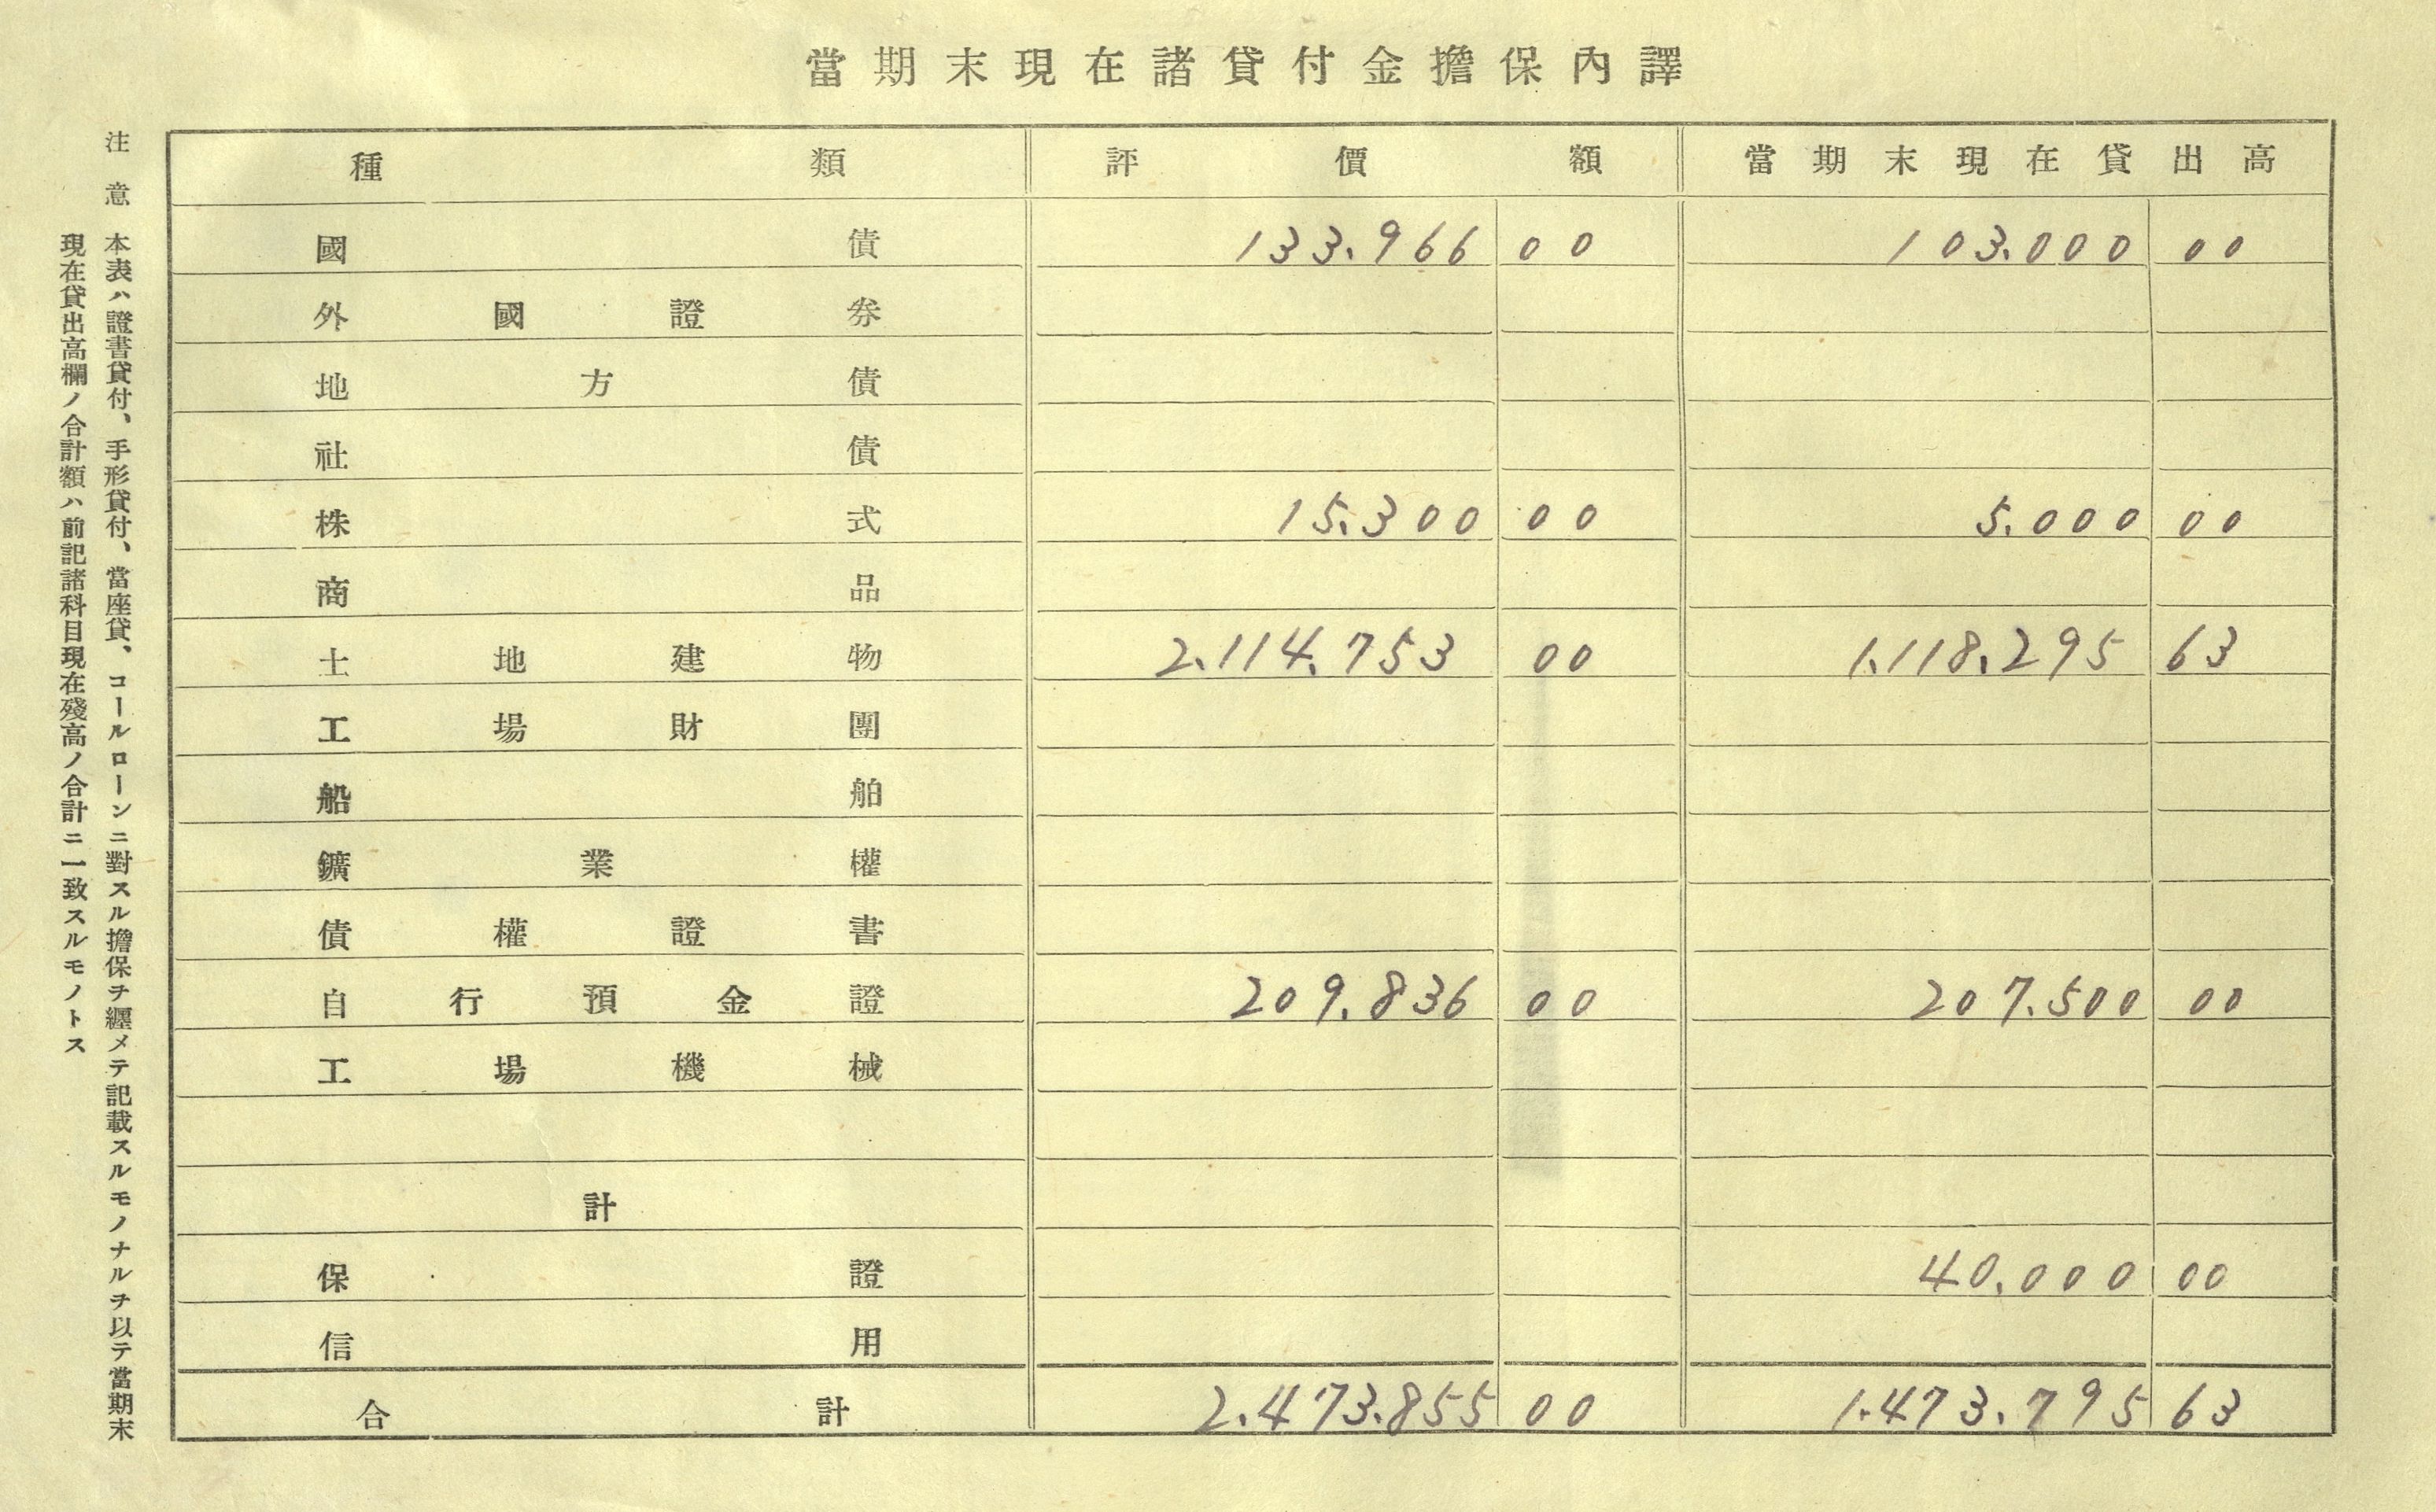 當期末現在諸貸付金擔保內譯
種類 評價額 當期末現在貸出高
國債 133.966 00 103.000 00
外國證券
地方債
社債
株式 15.300 00 5.000 00
商品
土地建物 2.114.753 00 1.118.295 63
工場財團
船舶
鑛業權
債權證書
自行預金證 209.836 00 207.500 00
工場機械
計
保證 40.000 00
信用
合計 2.473.855 00 1.473.795 63
注意 本表ハ證書貸付、手形貸付、當座貸、コールローンニ對スル擔保ヲ纒メテ記載スルモノナルヲ以テ當期末
現在貸出高欄ノ合計額ハ前記諸科目現在殘高ノ合計ニ一致スルモノトス